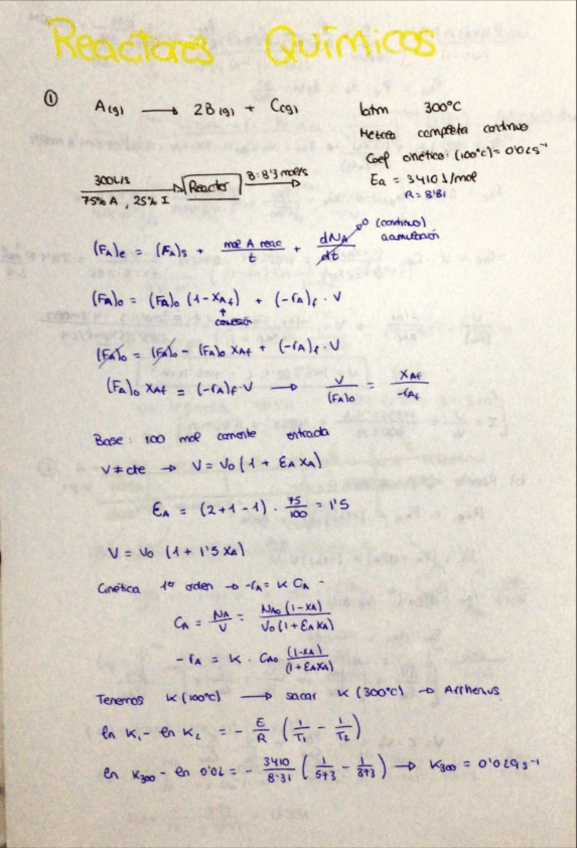 Reactores Químicos
① A(g) → 2B(g) + C(g)
1atm 300ºC
Mezcla completa continuo
Coef cinético: (100ºC) = 0'02 s⁻¹
Ea = 3410 J/mol
R = 8'31
300 L/s
75% A, 25% I
Reactor
B: 8'3 mol/s
(FA)e = (FA)s + mol A reac / t + dNA/dt → 0 (continuo) acumulación
(FA)o = (FA)o (1 - XAf) + (-rA)f · V
↑ conversión
(FA)o = (FA)o - (FA)o XAf + (-rA)f · V
(FA)o XAf = (-rA)f · V → V/(FA)o = XAf/-rAf
Base: 100 mol corriente entrada
V ≠ cte → V = Vo (1 + εA XA)
εA = (2+1-1) · 75/100 = 1'5
V = Vo (1 + 1'5 XA)
Cinética 1er orden → -rA = K CA
CA = NA/V = NAo (1-XA) / Vo (1+εA XA)
-rA = K · CAo (1-XA)/(1+εA XA)
Tenemos K (100ºC) → sacar K (300ºC) → Arrhenius
ln K1 - ln K2 = - E/R (1/T1 - 1/T2)
ln K300 - ln 0'02 = - 3410/8'31 (1/573 - 1/373) → K300 = 0'029 s⁻¹